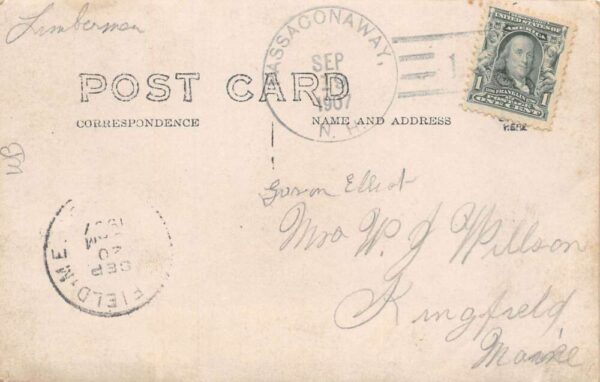 Lumberman
PASSACONAWAY,
SEP
1907
N. H.
1
UNITED STATES OF
AMERICA
1 1
FRANKLIN
ONE CENT
POST CARD
CORRESPONDENCE
NAME AND ADDRESS
HERE
WB
Elliot
Mrs W J Willson
Kingfield
Maine
FIELD, ME.
SEP
20
PM
1907